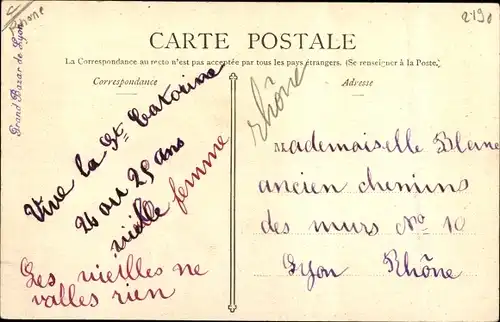 Rhone
2190
Grand Bazar de Lyon
CARTE POSTALE
La Correspondance au recto n'est pas acceptée par tous les pays étrangers. (Se renseigner à la Poste.)
Correspondance
Adresse
Vive la Ste Catorine
24 ou 25 ans
vieille femme
Les vieilles ne
valles rien
Rhône
Mademoiselle Blanc
ancien chemins
des murs No 10
Lyon Rhône